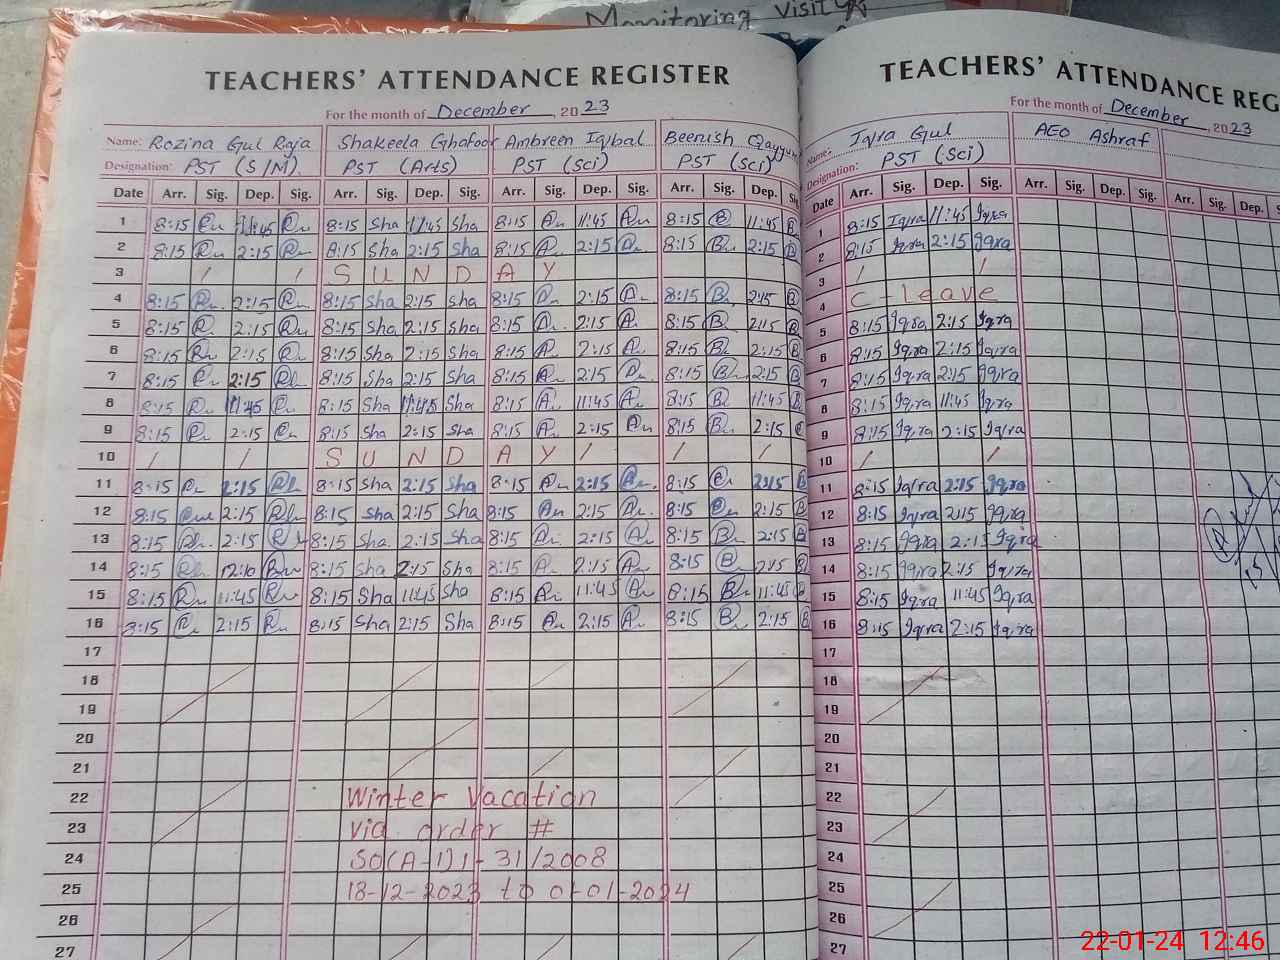 Monitoring visit
TEACHERS' ATTENDANCE REGISTER
For the month of December, 2023
Name: Rozina Gul Raja Shakeela Ghafoor Ambreen Iqbal Beenish Qayyum
Designation: PST (S/M). PST (Arts) PST (Sci) PST (Sci)
Date Arr. Sig. Dep. Sig. Arr. Sig. Dep. Sig. Arr. Sig. Dep. Sig. Arr. Sig. Dep. Sig
1 8:15 11:45 8:15 Sha 11:45 Sha 8:15 11:45 8:15 11:45
2 8:15 2:15 8:15 Sha 2:15 Sha 8:15 2:15 8:15 2:15
3 / / S U N D A Y
4 8:15 2:15 8:15 Sha 2:15 Sha 8:15 2:15 8:15 2:15
5 8:15 2:15 8:15 Sha 2:15 Sha 8:15 2:15 8:15 2:15
6 8:15 2:15 8:15 Sha 2:15 Sha 8:15 2:15 8:15 2:15
7 8:15 2:15 8:15 Sha 2:15 Sha 8:15 2:15 8:15 2:15
8 8:15 11:45 8:15 Sha 11:45 Sha 8:15 11:45 8:15 11:45
9 8:15 2:15 8:15 Sha 2:15 Sha 8:15 2:15 8:15 2:15
10 / / S U N D A Y / / /
11 8:15 2:15 8:15 Sha 2:15 Sha 8:15 2:15 8:15 2:15
12 8:15 2:15 8:15 Sha 2:15 Sha 8:15 2:15 8:15 2:15
13 8:15 2:15 8:15 Sha 2:15 Sha 8:15 2:15 8:15 2:15
14 8:15 12:10 8:15 Sha 2:15 Sha 8:15 2:15 8:15 2:15
15 8:15 11:45 8:15 Sha 11:45 Sha 8:15 11:45 8:15 11:45
16 8:15 2:15 8:15 Sha 2:15 Sha 8:15 2:15 8:15 2:15
17
18
19
20
21
22 Winter Vacation
23 via order #
24 SO(A-1)1-31/2008
25 18-12-2023 to 01-01-2024
26
27
TEACHERS' ATTENDANCE REG
For the month of December, 2023
Name: Iqra Gul AEO Ashraf
Designation: PST (Sci)
Date Arr. Sig. Dep. Sig. Arr. Sig. Dep. Sig. Arr. Sig. Dep. S
1 8:15 Iqra 11:45 Iqra
2 8:15 Iqra 2:15 Iqra
3 / /
4 C - Leave
5 8:15 Iqra 2:15 Iqra
6 8:15 Iqra 2:15 Iqra
7 8:15 Iqra 2:15 Iqra
8 8:15 Iqra 11:45 Iqra
9 8:15 Iqra 2:15 Iqra
10 / /
11 8:15 Iqra 2:15 Iqra
12 8:15 Iqra 2:15 Iqra
13 8:15 Iqra 2:15 Iqra
14 8:15 Iqra 2:15 Iqra
15 8:15 Iqra 11:45 Iqra
16 8:15 Iqra 2:15 Iqra
17
18
19
20
21
22
23
24
25
26
27
22-01-24 12:46